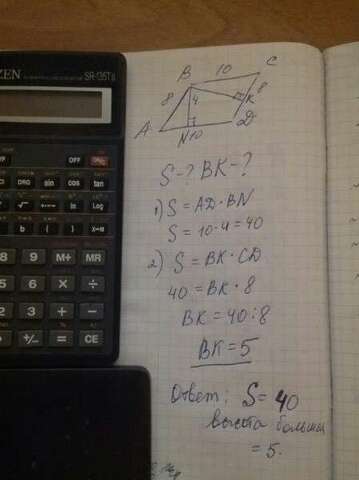 ZEN
SR-135TII
C
B 10
8 4 8 K
A N 10 D
S-? BK-?
1) S = AD·BN
S = 10·4 = 40
2) S = BK·CD
40 = BK·8
BK = 40:8
BK = 5
Ответ: S = 40
высота
= 5.
OFF
DRG sin cos tan
In Log
b ( ) x→M
8 9 M+ MR
5 6 × ÷
2 3 + −
• +/− = CE